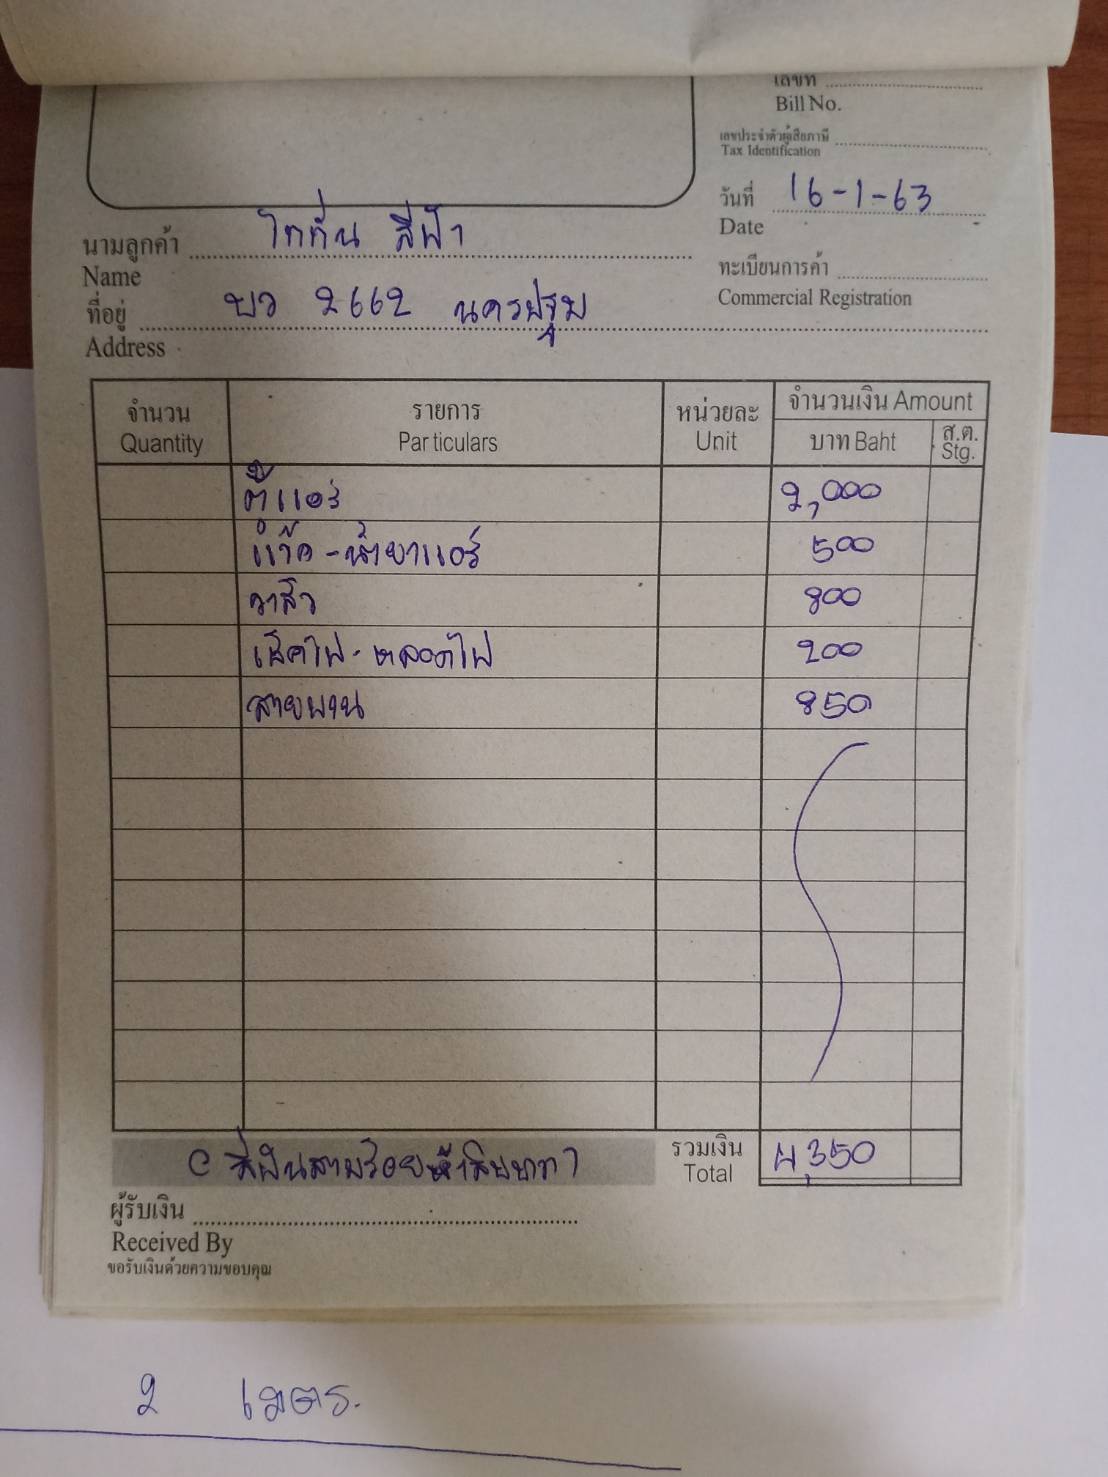 เลขที่
Bill No.
เลขประจำตัวผู้เสียภาษี
Tax Identification
วันที่ 16-1-63
Date
นามลูกค้า ไททั่น สีฟ้า
Name
ทะเบียนการค้า
Commercial Registration
ที่อยู่ บว 2662 นครปฐม
Address
จำนวน รายการ หน่วยละ จำนวนเงิน Amount
Quantity Particulars Unit บาท Baht ส.ต. Stg.
ตู้แอร์ 2,000
แว๊ค-น้ำยาแอร์ 500
วาล์ว 800
เช็คไฟ-หลอดไฟ 200
สายพาน 850
(สี่พันสามร้อยห้าสิบบาท) รวมเงิน 4,350
Total
ผู้รับเงิน
Received By
ขอรับเงินด้วยความขอบคุณ
2 เมตร.